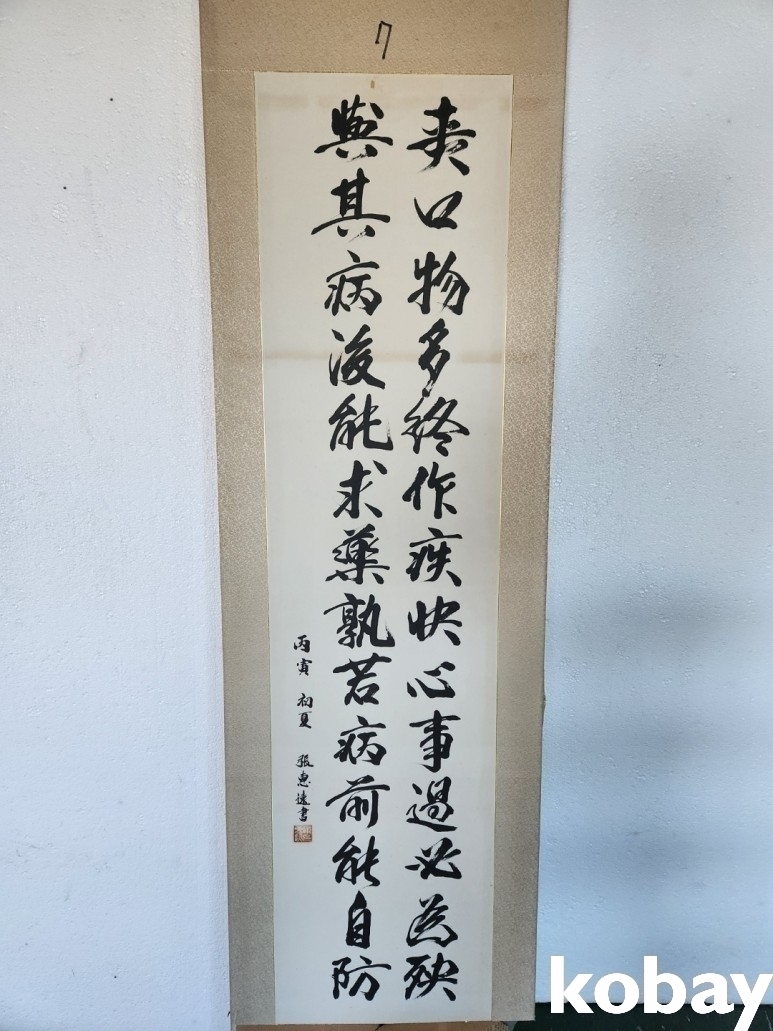 7
爽口物多終作疾快心事過必為殃
與其病後能求藥孰若病前能自防
丙寅 初夏 張惠遠書
kobay